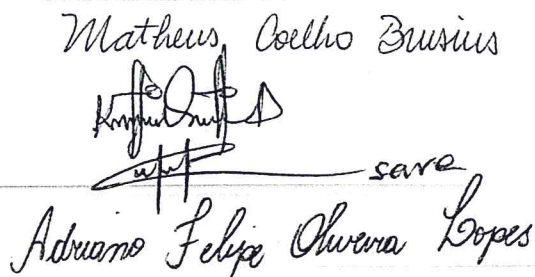 Matheus Coelho Brusius
sara
Adriano Felipe Oliveira Lopes